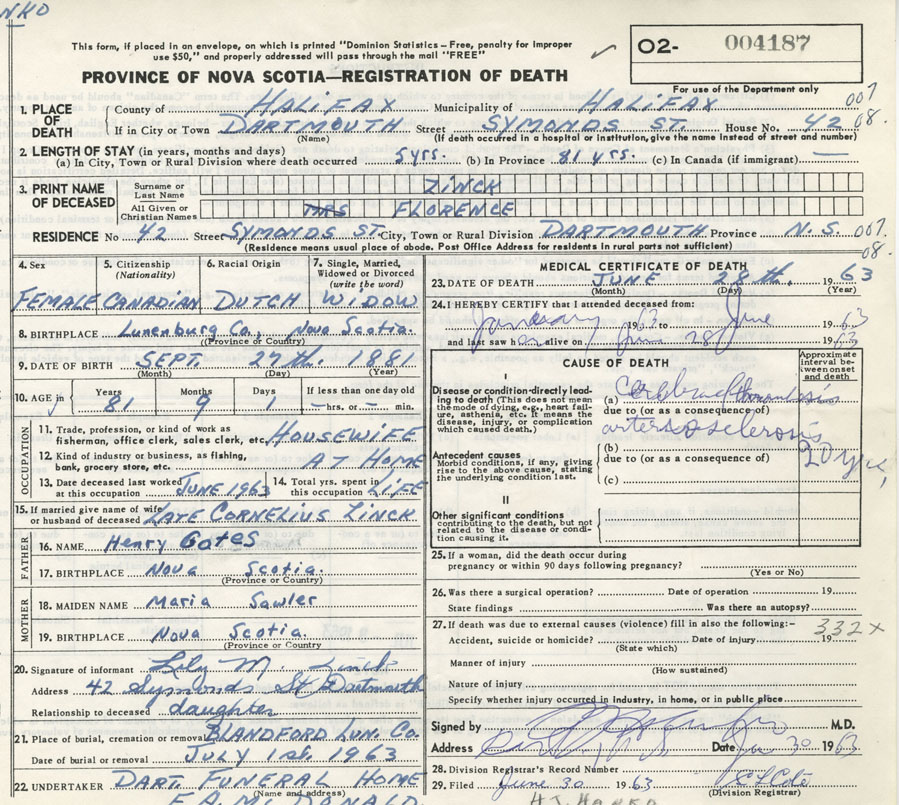 NKO
This form, if placed in an envelope, on which is printed "Dominion Statistics – Free, penalty for improper
use $50," and properly addressed will pass through the mail "FREE"
O2- 004187
PROVINCE OF NOVA SCOTIA—REGISTRATION OF DEATH
For use of the Department only
1. PLACE OF DEATH
County of HALIFAX Municipality of HALIFAX 007
If in City or Town DARTMOUTH Street SYMONDS ST. House No. 42 08.
(Name) (If death occurred in a hospital or institution, give the name instead of street and number)
2. LENGTH OF STAY (in years, months and days)
(a) In City, Town or Rural Division where death occurred 5 yrs. (b) In Province 81 yrs. (c) In Canada (if immigrant) —
3. PRINT NAME OF DECEASED
Surname or Last Name ZINCK
All Given or Christian Names MRS FLORENCE
RESIDENCE No 42 Street SYMONDS ST City, Town or Rural Division DARTMOUTH Province N. S. 007.
(Residence means usual place of abode. Post Office Address for residents in rural parts not sufficient) 08.
4. Sex FEMALE
5. Citizenship (Nationality) CANADIAN
6. Racial Origin DUTCH
7. Single, Married, Widowed or Divorced (write the word) WIDOW
8. BIRTHPLACE Lunenburg Co., Nova Scotia.
(Province or Country)
9. DATE OF BIRTH SEPT. 27th. 1881
(Month) (Day) (Year)
10. AGE in Years 81 Months 9 Days 1 If less than one day old — hrs. or — min.
OCCUPATION
11. Trade, profession or kind of work as
fisherman, office clerk, sales clerk, etc. HOUSEWIFE
12. Kind of industry or business, as fishing,
bank, grocery store, etc. AT HOME
13. Date deceased last worked at this occupation JUNE 1963
14. Total yrs. spent in this occupation LIFE
15. If married give name of wife
or husband of deceased LATE CORNELIUS ZINCK
FATHER
16. NAME Henry Gates
17. BIRTHPLACE Nova Scotia.
(Province or Country)
MOTHER
18. MAIDEN NAME Maria Sawler
19. BIRTHPLACE Nova Scotia.
(Province or Country)
20. Signature of informant Lily M. Zinck
Address 42 Symonds St Dartmouth
Relationship to deceased daughter
21. Place of burial, cremation or removal BLANDFORD LUN. Co.
Date of burial or removal JULY 1st. 1963
22. UNDERTAKER DART. FUNERAL HOME
(Name and address)
MEDICAL CERTIFICATE OF DEATH
23. DATE OF DEATH JUNE 28th. 1963
(Month) (Day) (Year)
24. I HEREBY CERTIFY that I attended deceased from:
January 1963 to June 1963
and last saw her alive on June 28 1963
CAUSE OF DEATH
Approximate interval between onset and death
I
Disease or condition directly leading to death (This does not mean
the mode of dying, e.g., heart failure, asthenia, etc. It means the
disease, injury, or complication
which caused death.)
(a) Cerebral thrombosis
due to (or as a consequence of)
arteriosclerosis
Antecedent causes
Morbid conditions, if any, giving
rise to the above cause, stating
the underlying condition last.
(b)
due to (or as a consequence of)
(c)
II
Other significant conditions
contributing to the death, but not
related to the disease or condition causing it.
25. If a woman, did the death occur during
pregnancy or within 90 days following pregnancy?
(Yes or No)
26. Was there a surgical operation? Date of operation 19
State findings Was there an autopsy?
27. If death was due to external causes (violence) fill in also the following:– 332x
Accident, suicide or homicide? Date of injury 19
(State which)
Manner of injury
(How sustained)
Nature of injury
Specify whether injury occurred in industry, in home, or in public place
Signed by M.D.
Address Date 30 1963
28. Division Registrar's Record Number
29. Filed June 30 1963
(Division Registrar)